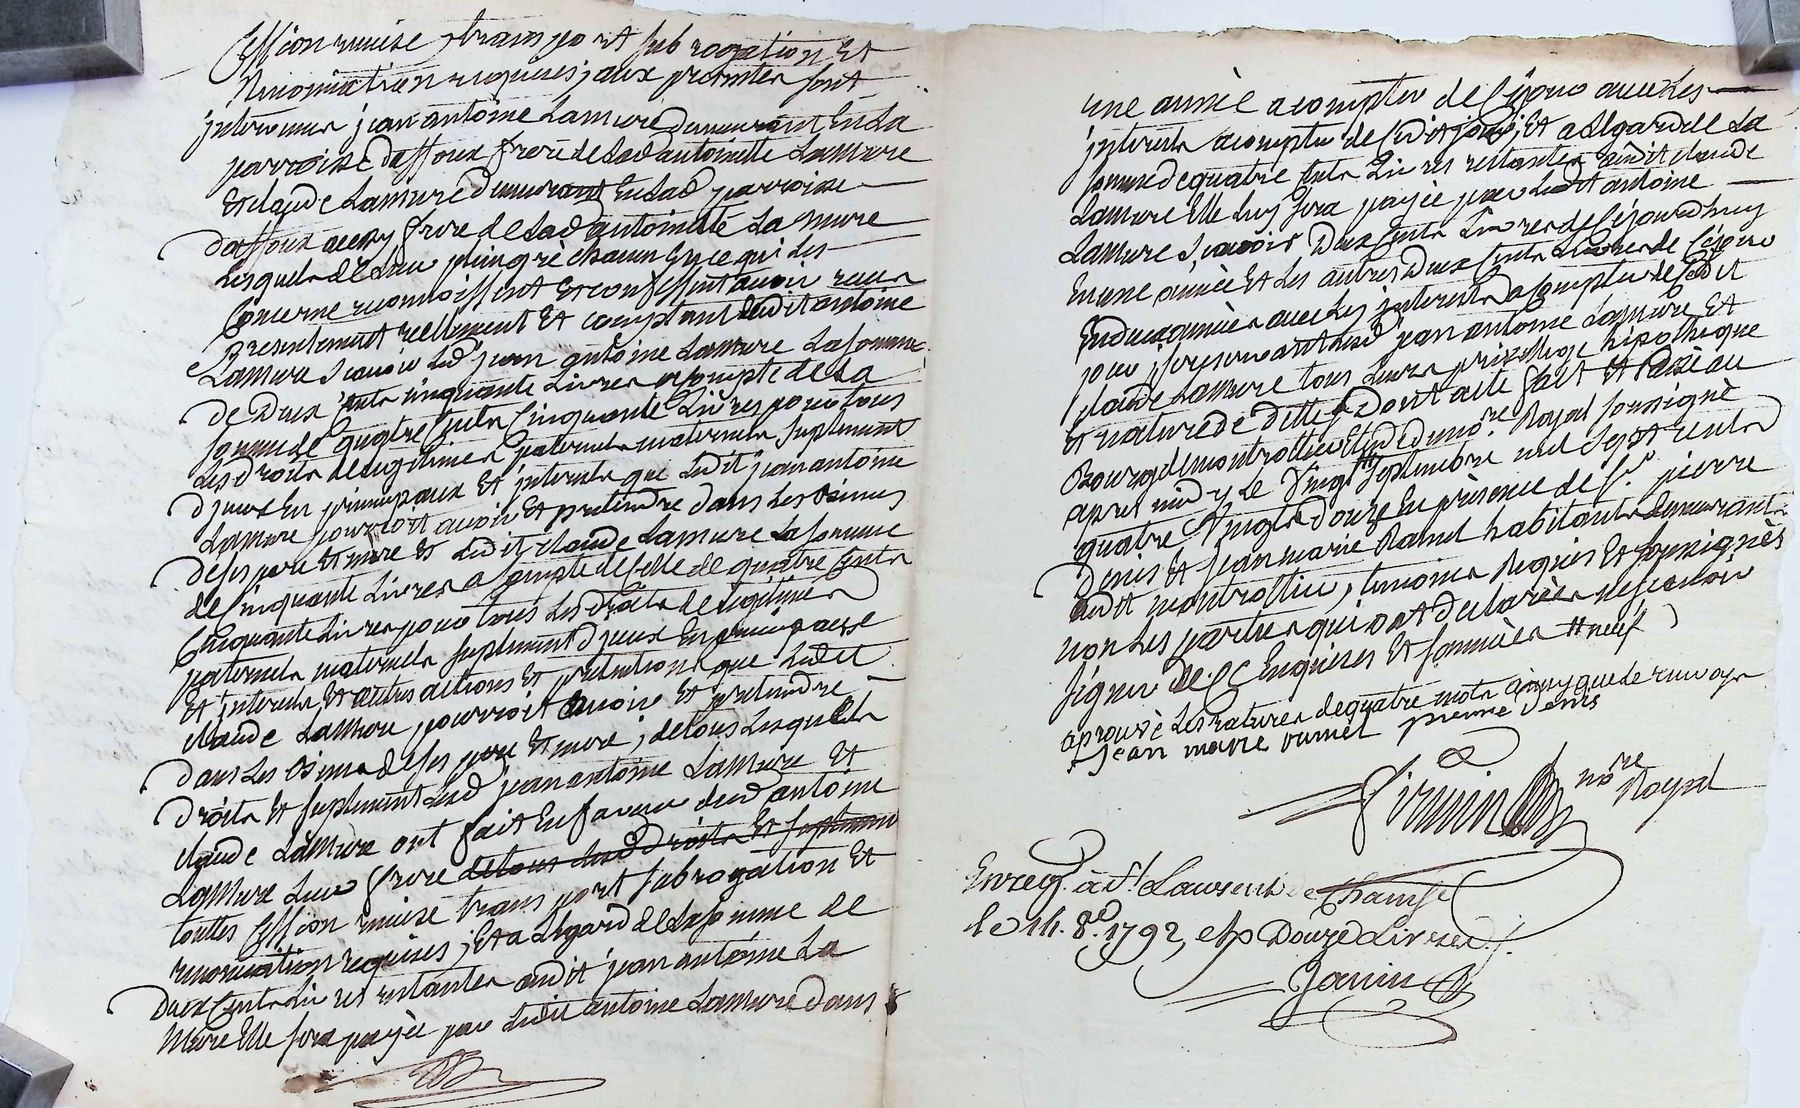 Cession remise, transport subrogation Et
Renonciation requises; aux presentes sont
intervenus jean antoine Lamure demeurant En La
parroisse d'affoux frere de Lad antoinette Lamure
Et claude Lamure demeurant En Lad parroisse
d'affoux aussy frere de Lad antoinette La Mure
Lesquels de Leur plein gré chacun En ce qui Les
Concerne reconnoissent Et confessent avoir reçu
Presentement reellement Et comptant dudit antoine
Lamure sçavoir Led jean antoine Lamure La somme
de deux Cents cinquante Livres a compte de La
somme de quatre Cents Cinquante Livres pour tous
Les droits de Legitimes paternels maternels suplement
d'yceux En principaux Et interets que Ledit jean antoine
Lamure pourroit avoir Et pretendre dans Les biens
de ses pere Et mere Et Ledit claude Lamure La somme
de Cinquante Livres a Compte de Celle de quatre Cents
Cinquante Livres pour tous Les droits de Legitimes
paternels maternels suplement d'yceux En principaux
Et interets, Et autres actions Et pretentions que Ledit
claude Lamure pourroit avoir Et pretendre
dans Les biens de ses pere Et mere; de tous Lesquels
droits Et suplement Led jean antoine Lamure Et
claude Lamure ont fait En faveur dud antoine
Lamure Leur frere de tous Lesd droits Et suplement
touttes Cession remise transport subrogation Et
renonciation requises; Et a L'egard de La somme de
deux Cents Livres restantes audit jean antoine La
Mure Elle sera payée par Ledit antoine Lamure dans
une année a compter de Cejour avec Les
interets a compter de Cedit jour; Et a L'egard de La
somme de quatre Cents Livres restantes audit claude
Lamure Elle Luy sera payée par Ledit antoine
Lamure sçavoir deux Cents Livres de Cejourd'huy
En une année Et Les autres deux Cents Livres de Cejour
En deux années avec Les interets a Compter de Cedit
jour se reservant Lesd jean antoine Lamure Et
claude Lamure tous Leurs privillege hipotheque
Et nature de dette, dont acte fait Et Passé au
Bourg de montrottier Etude du nore Royal soussigné
apres midy Le Vingt septembre mil sept cents
quatre Vingts douze En presence de Sr. pierre
Denis Et jean marie Ramel habitants demeurants
audit montrottier, temoins Requis Et soussignés
non Les parties qui ont declarées ne sçavoir
signer de Ce Enquises Et sommées # neuf
aprouvé Les ratures de quatre mots ainsy que le renvoy
jean marie ramel pierre denis
nore Royal
Enreg. à St. Laurent de Chamse
le 14. 8e. 1792, douze Livres
Janin